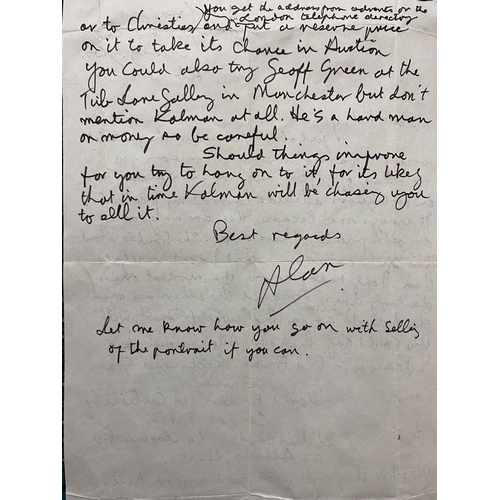 You get the address from adverts or the
London telephone directory
or to Christies and put a reserve price
on it to take its chance in Auction
You Could also try Geoff Green at the
Tib Lane Gallery in Manchester but don't
mention Kalman at all. He's a hard man
on money so be careful.
Should things improve
for you try to hang on to it, for its likely
that in time Kalman will be chasing you
to sell it.
Best regards
Alan
Let me know how you go on with selling
of the portrait if you can.